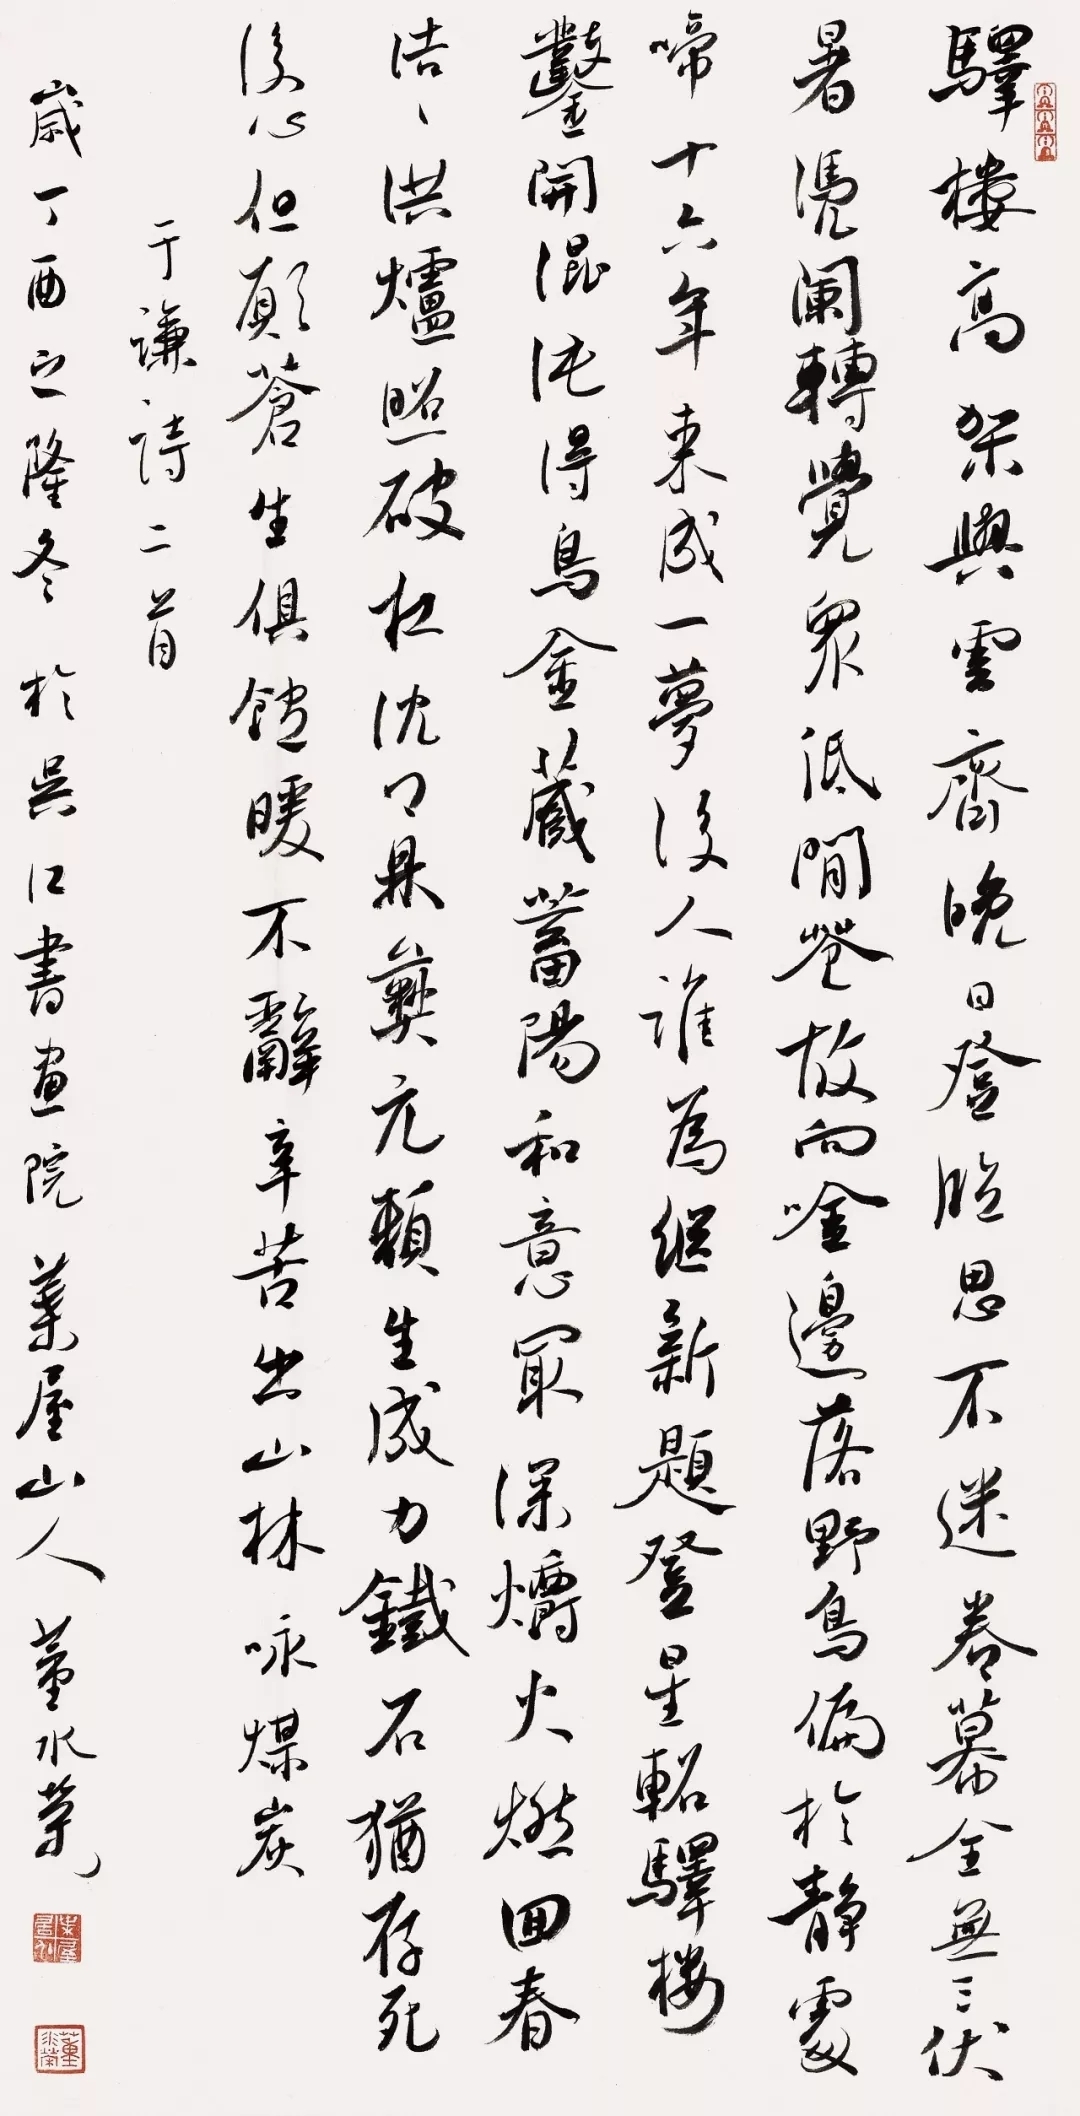 驛樓高架與雲齊晚日登臨思不迷卷幕全無三伏
暑憑闌轉覺眾低閒花故向唫邊落野鳥偏於靜處
啼十六年來成一夢後人誰為繼新題登星軺驛樓
鑿開混沌得烏金藏蓄陽和意冣深爝火燃回春
浩々洪爐照破夜沈々鼎彝元賴生成力鐵石猶存死
後心但願蒼生俱飽暖不辭辛苦出山林 咏煤炭
于謙詩二首
歲丁酉之隆冬於吳江書畫院葉屋山人董水榮
董水榮